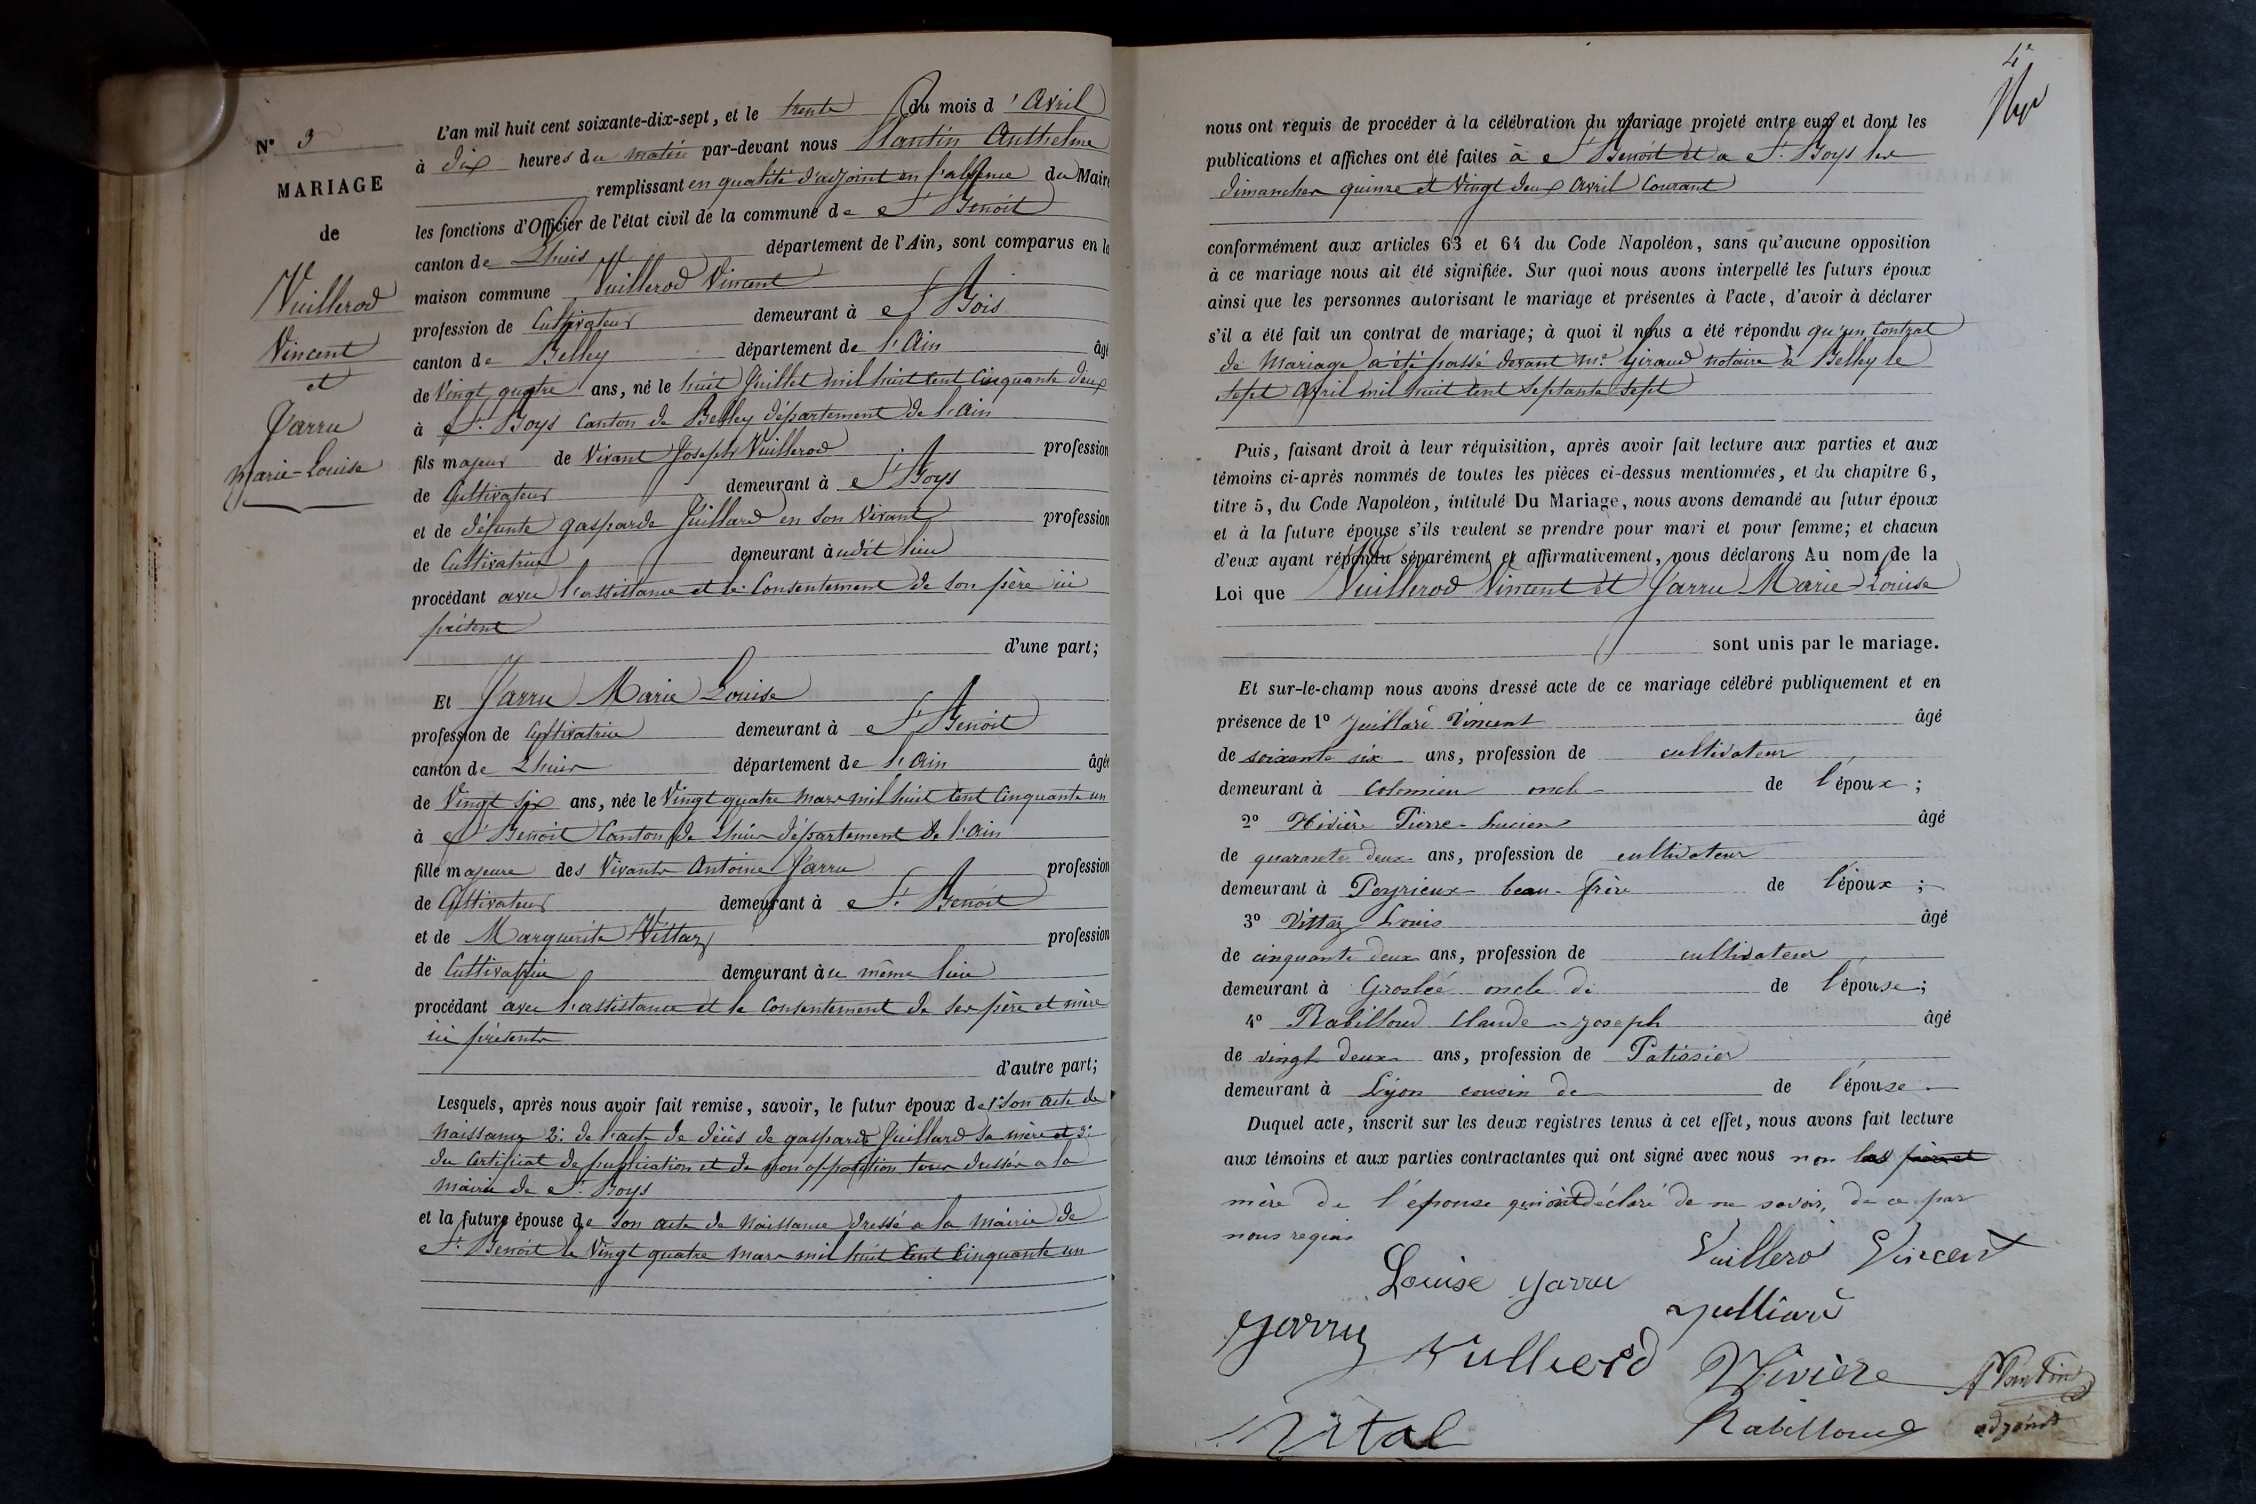 N° 3
MARIAGE
de
Vuillerod
Vincent
et
Jarru
Marie-Louise
L'an mil huit cent soixante-dix-sept, et le trente du mois d'Avril
à dix heures du matin par-devant nous Plantin Anthelme
remplissant en qualité d'adjoint en l'absence du Maire
les fonctions d'Officier de l'état civil de la commune de St Benoit
canton de Lhuis département de l'Ain, sont comparus en la
maison commune Vuillerod Vincent
profession de Cultivateur demeurant à St Bois
canton de Belley département de l'Ain âgé
de Vingt quatre ans, né le huit Juillet mil huit cent Cinquante deux
à St. Boys Canton de Belley département de l'ain
fils majeur de Vivant Joseph Vuillerod profession
de Cultivateur demeurant à St Boys
et de défunte gasparde Juillard en son vivant profession
de Cultivatrice demeurant à udit lieu
procédant avec l'assistance et le Consentement de son père ici
présent
d'une part;
Et Jarru Marie Louise
profession de Cultivatrice demeurant à St Benoit
canton de Lhuis département de l'Ain âgée
de Vingt six ans, née le Vingt quatre mars mil huit cent Cinquante un
à St Benoit Canton de Lhuis département de l'ain
fille majeure des Vivants Antoine Jarru profession
de Cultivateur demeurant à St. Benoit
et de Marguerite Vittaz profession
de Cultivatrice demeurant à u même lieu
procédant avec l'assistance et le Consentement de ses père et mère
ici présents
d'autre part;
Lesquels, après nous avoir fait remise, savoir, le futur époux de 1° Son acte de
Naissance 2° de l'acte de décès de gasparde Juillard sa mère et 3°
du Certificat de publication et de non opposition tous dressés a la
mairie de St. Boys
et la future épouse de Son acte de Naissance dressé a la Mairie de
St. Benoit le Vingt quatre mars mil huit Cent Cinquante un
4e
nous ont requis de procéder à la célébration du mariage projeté entre eux et dont les
publications et affiches ont été faites à St Benoit et a St. Boys les
dimanches quinze et Vingt deux Avril Courant
conformément aux articles 63 et 64 du Code Napoléon, sans qu'aucune opposition
à ce mariage nous ait été signifiée. Sur quoi nous avons interpellé les futurs époux
ainsi que les personnes autorisant le mariage et présentes à l'acte, d'avoir à déclarer
s'il a été fait un contrat de mariage; à quoi il nous a été répondu qu'un Contrat
de Mariage a été passé devant Me. Giraud notaire à Belley le
sept Avril mil huit cent septante sept
Puis, faisant droit à leur réquisition, après avoir fait lecture aux parties et aux
témoins ci-après nommés de toutes les pièces ci-dessus mentionnées, et du chapitre 6,
titre 5, du Code Napoléon, intitulé Du Mariage, nous avons demandé au futur époux
et à la future épouse s'ils veulent se prendre pour mari et pour femme; et chacun
d'eux ayant répondu séparément et affirmativement, nous déclarons Au nom de la
Loi que Vuillerod Vincent et Jarru Marie-Louise
sont unis par le mariage.
Et sur-le-champ nous avons dressé acte de ce mariage célébré publiquement et en
présence de 1° Juillard Vincent âgé
de soixante six ans, profession de cultivateur
demeurant à Colomieu oncle de l'époux;
2° Rivière Pierre-Lucien âgé
de quarante deux ans, profession de cultivateur
demeurant à Peyrieux beau-frère de l'époux;
3° Vittaz Louis âgé
de cinquante deux ans, profession de cultivateur
demeurant à Groslée oncle de de l'épouse;
4° Rabilloud Claude-Joseph âgé
de vingt deux ans, profession de Patissier
demeurant à Lyon cousin de de l'épouse
Duquel acte, inscrit sur les deux registres tenus à cet effet, nous avons fait lecture
aux témoins et aux parties contractantes qui ont signé avec nous non las père et
mère de l'épouse qui ont déclaré de ne savoir, de ce par
nous requis
Vuillerod Vincent
Louise Jarru
Julliard
Jarru
Vullierd
Rivière
APlantin
Vital
Rabilloud
adjoint